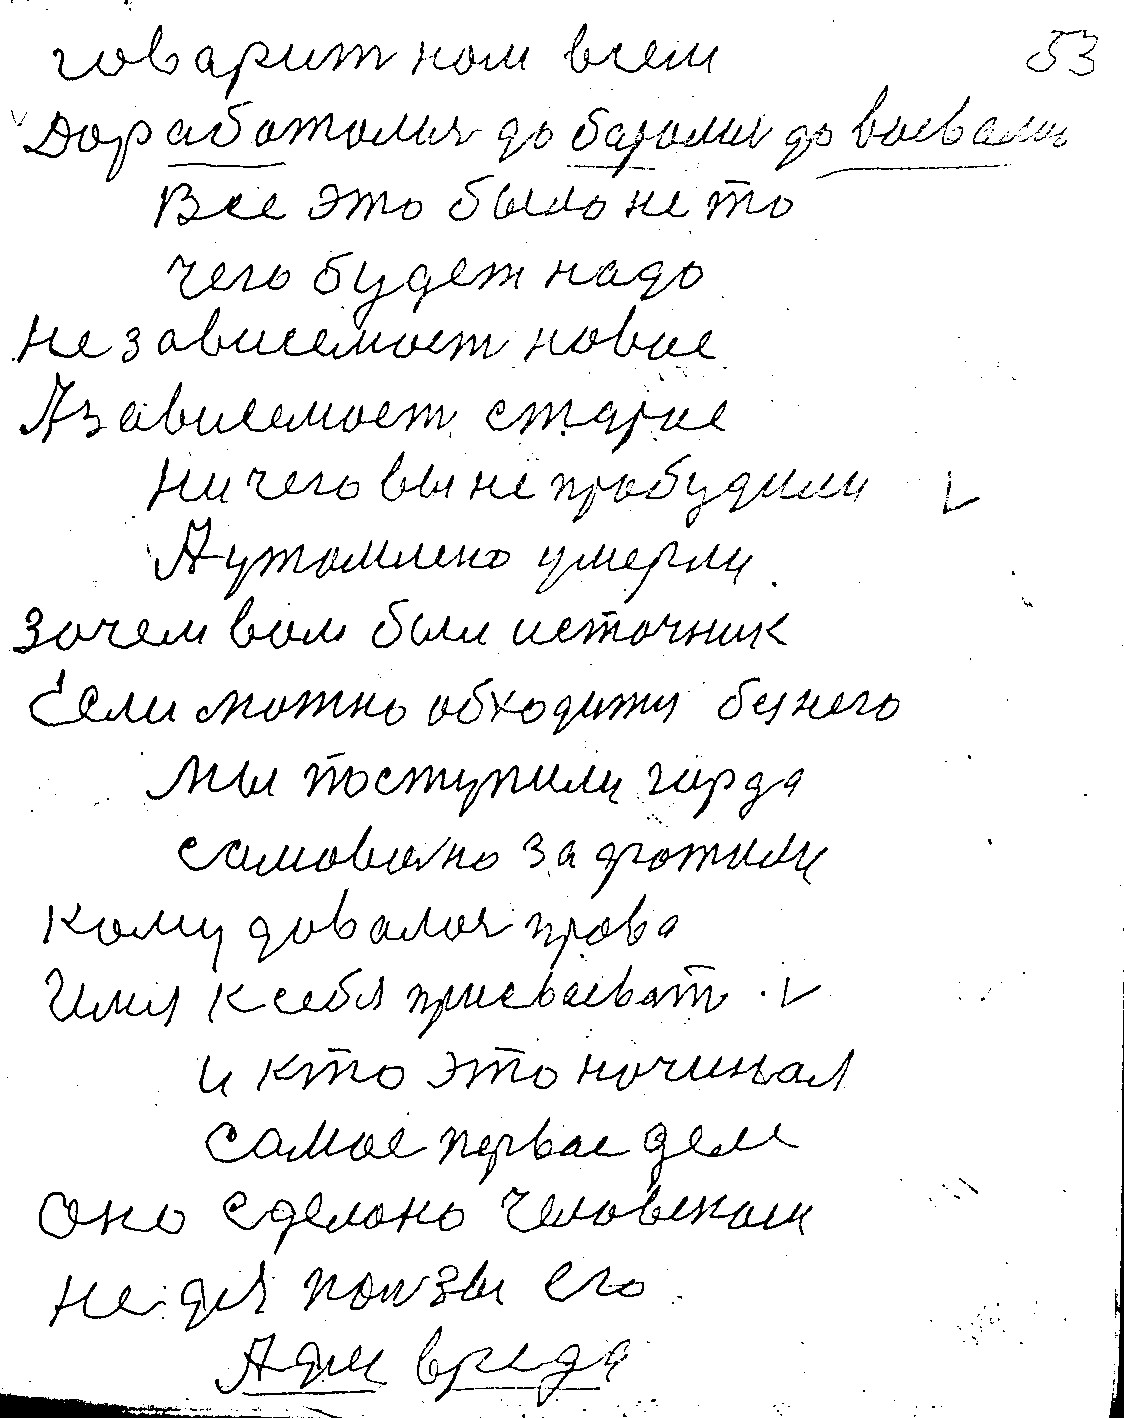 говарит нам всем 53
Дорабатался до баролся до воевались
Все это было не то
чего будет надо
Не зависемост новое
А зависемост старое
Ни чего вы не пробудили
А утомлено умерли
Зачем вам был источник
Если можно обходится без него
Мы поступили горда
самовольно задрожили
Кому довался права
Имя к себя присваеват
и кто это начинал
Самое первое деле
Оно сделано человеком
Не для ползы его
А для вреда